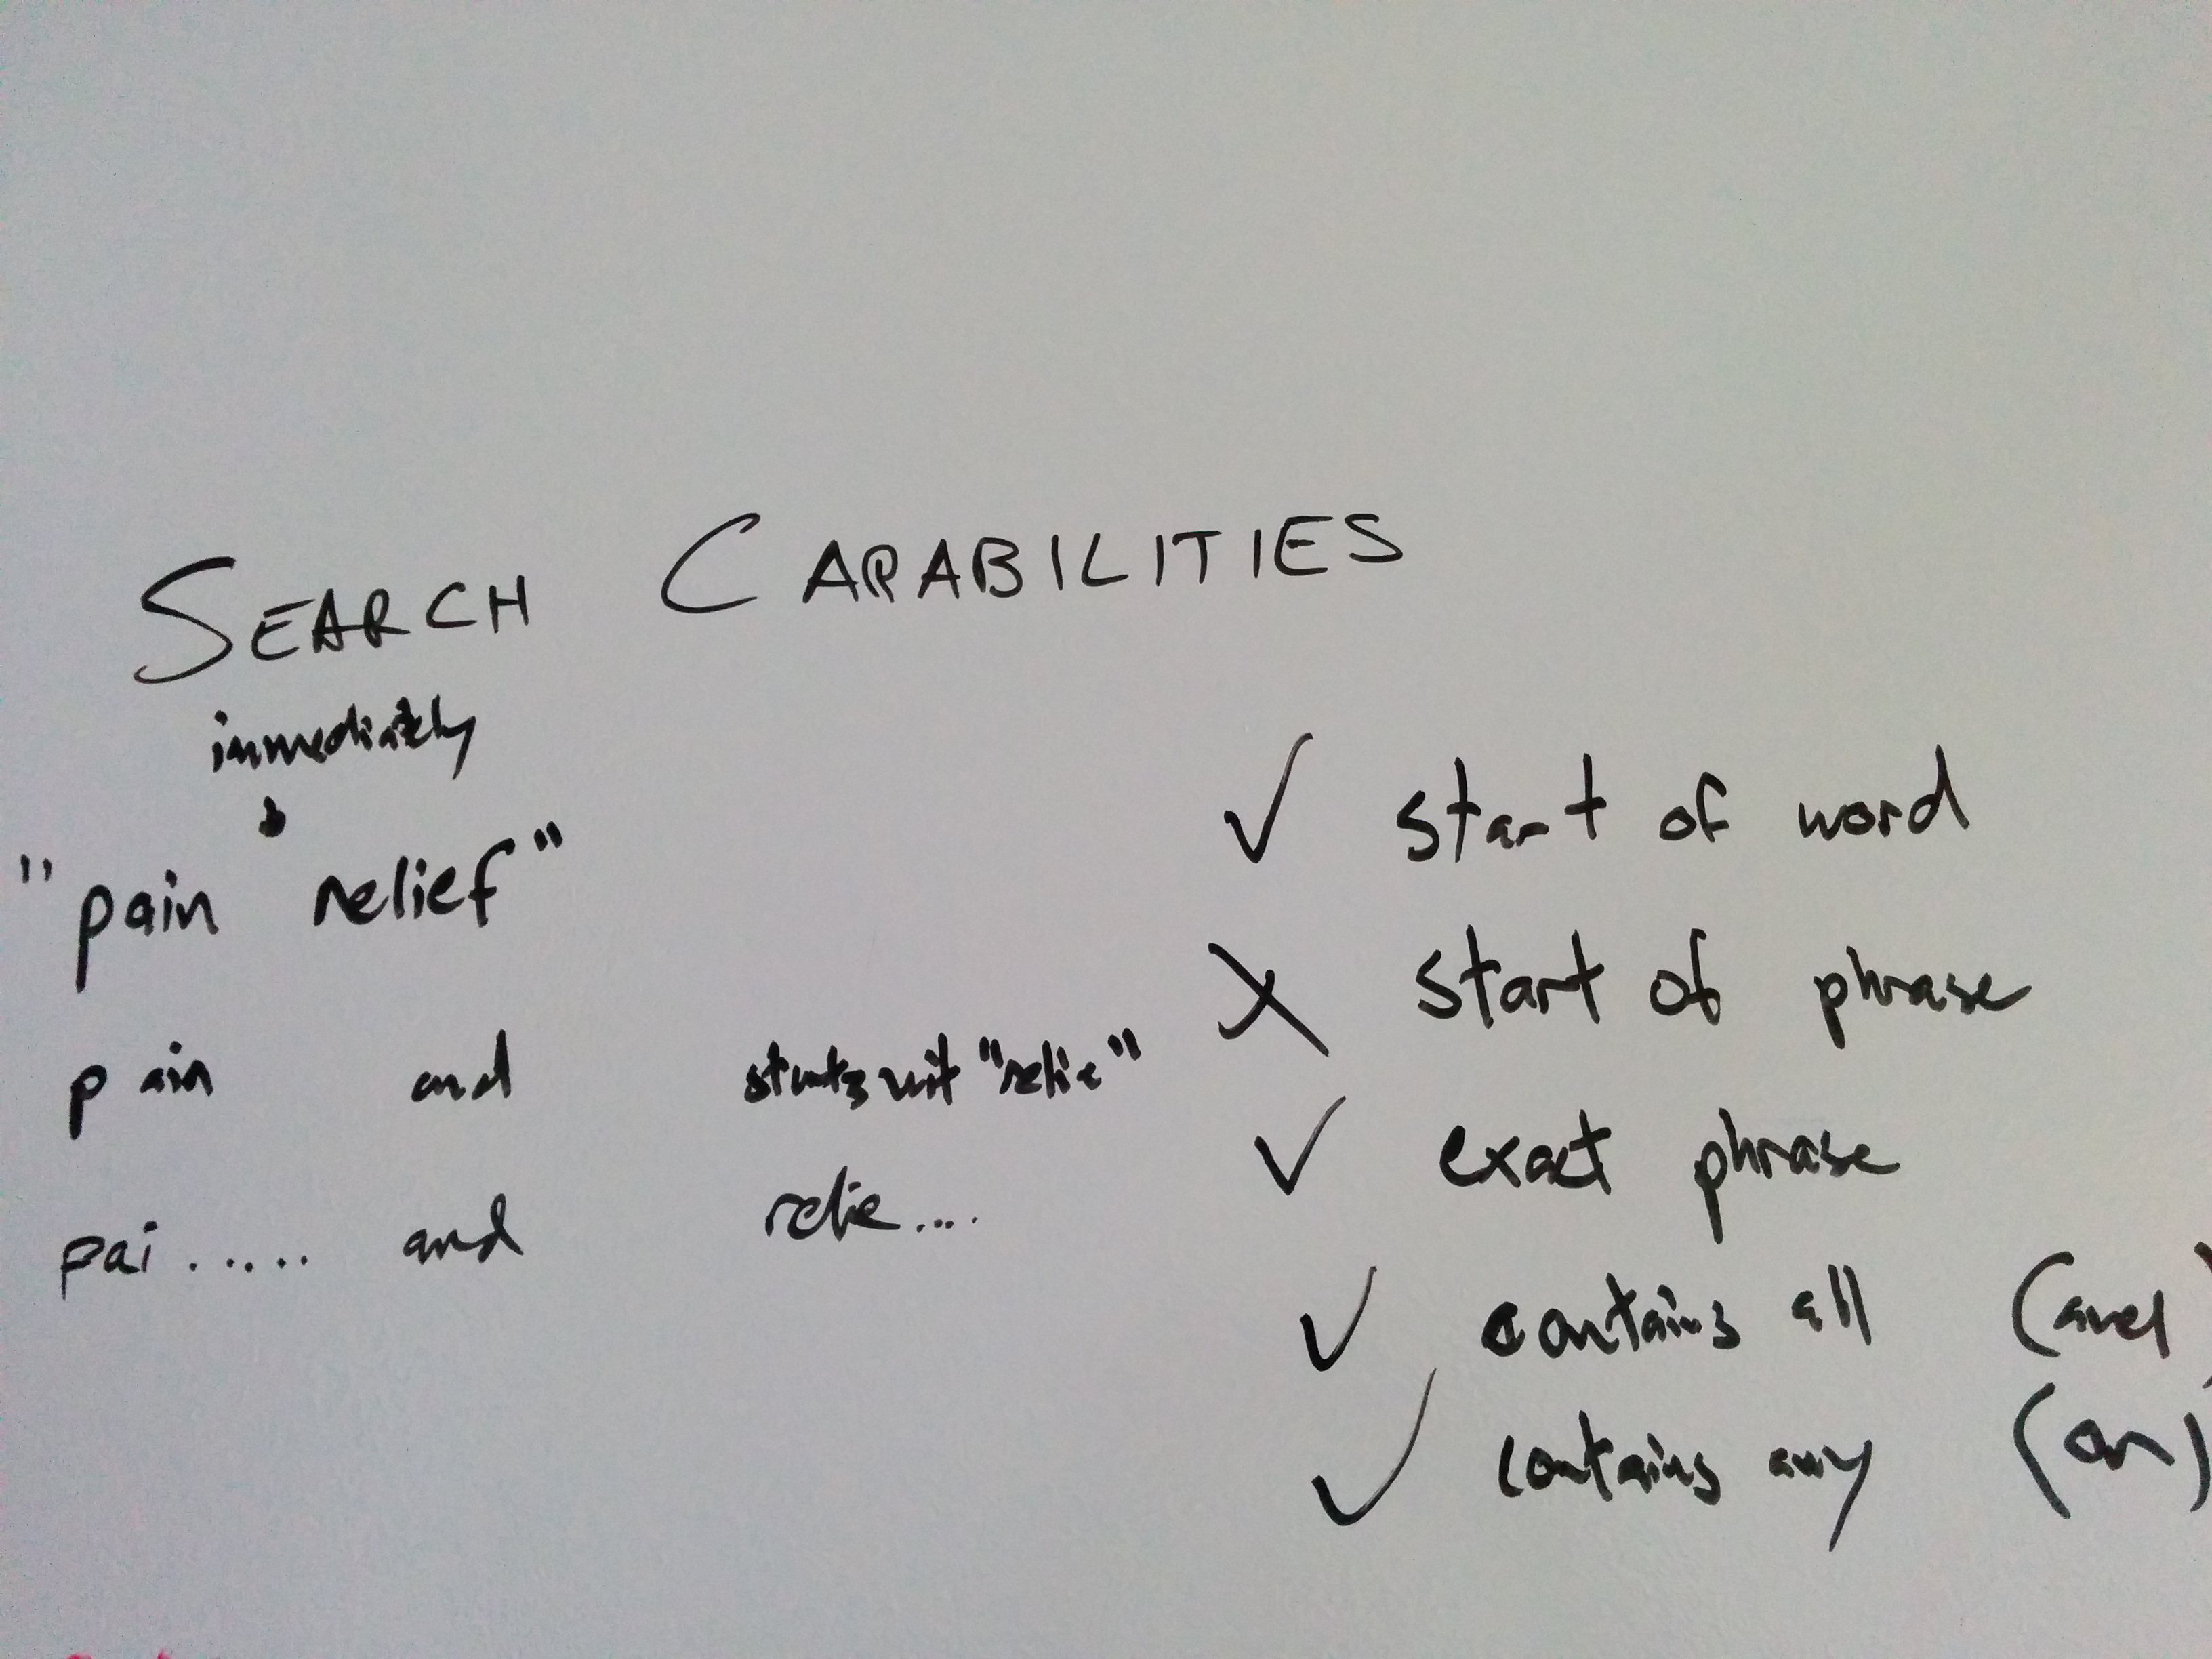 SEARCH CAPABILITIES
immediately
"pain relief"
pain and starts wit "relie"
pai ...... and relie ....
✓ start of word
X start of phrase
✓ exact phrase
✓ contains all (and)
✓ contains any (or)